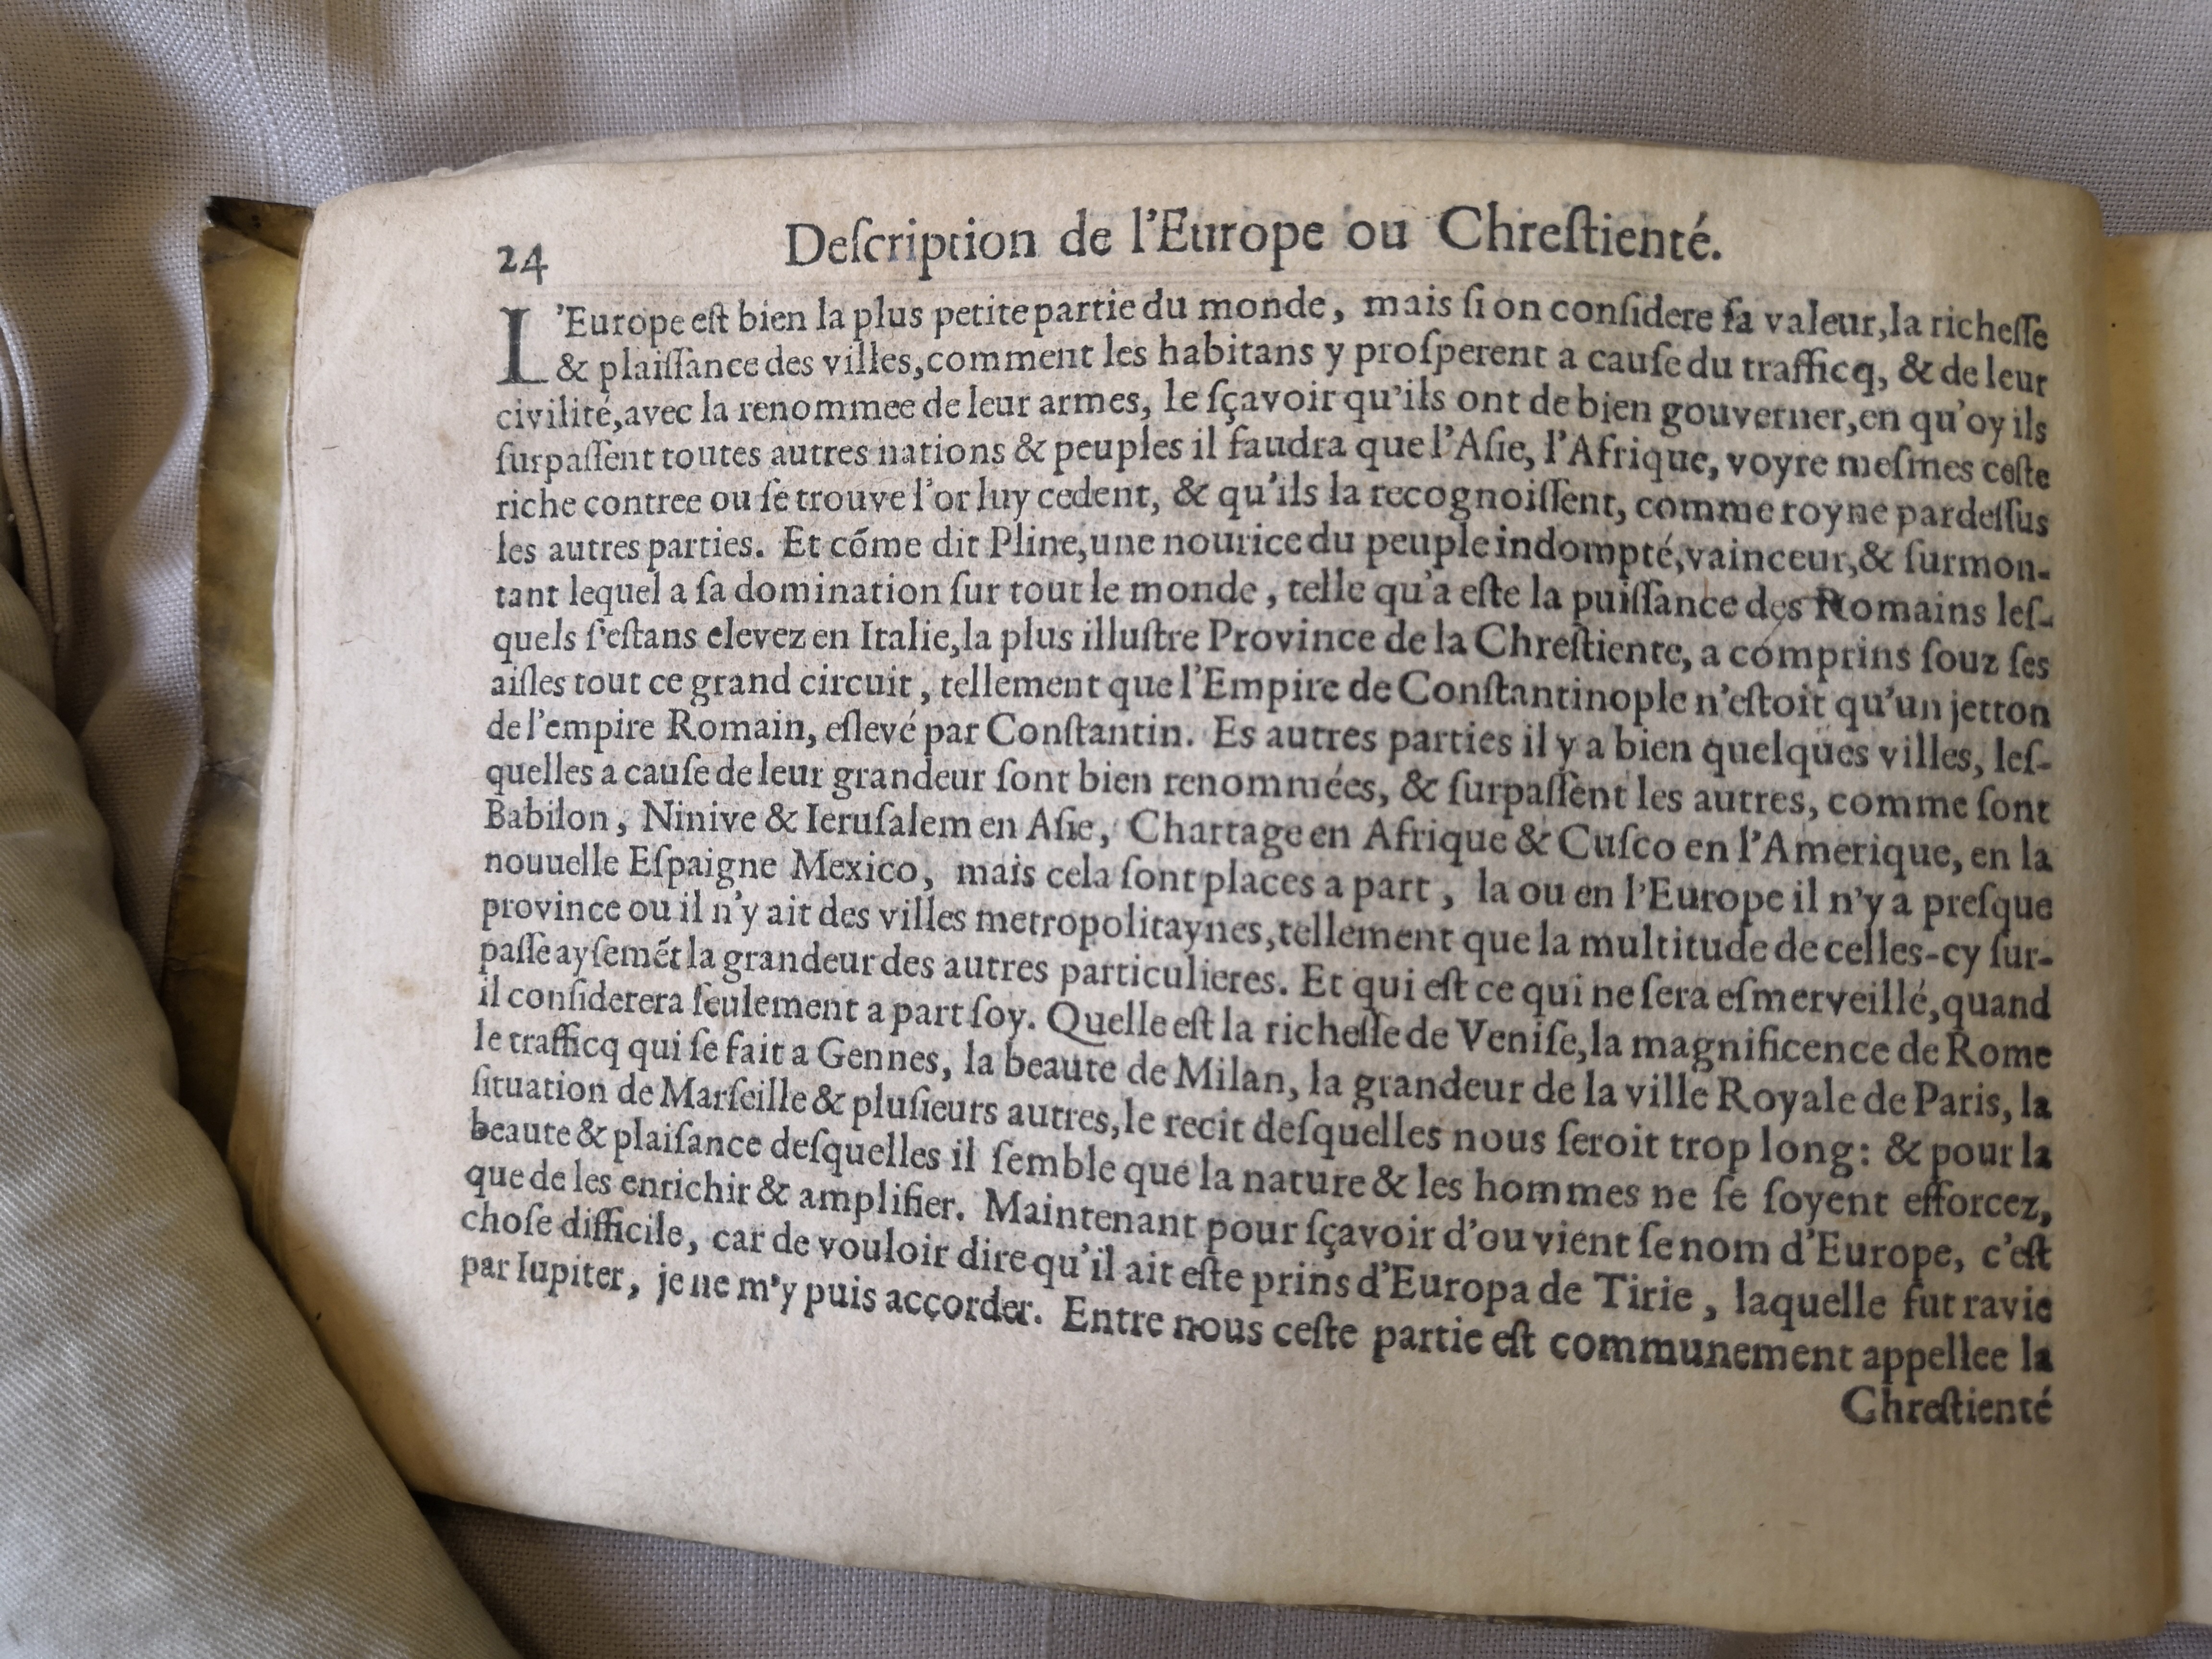 24
Deſcription de l'Europe ou Chreſtienté.
L'Europe eſt bien la plus petite partie du monde, mais ſi on conſidere ſa valeur, la richeſſe
& plaiſſance des villes, comment les habitans y proſperent a cauſe du trafficq, & de leur
civilité, avec la renommee de leur armes, le ſçavoir qu'ils ont de bien gouverner, en qu'oy ils
ſurpaſſent toutes autres nations & peuples il faudra que l'Aſie, l'Afrique, voyre meſmes ceſte
riche contree ou ſe trouve l'or luy cedent, & qu'ils la recognoiſſent, comme royne pardeſſus
les autres parties. Et cõme dit Pline, une nourice du peuple indompté, vainceur, & ſurmon-
tant lequel a ſa domination ſur tout le monde, telle qu'a eſte la puiſſance des Romains leſ-
quels ſ'eſtans elevez en Italie, la plus illuſtre Province de la Chreſtiente, a comprins ſouz ſes
aiſles tout ce grand circuit, tellement que l'Empire de Conſtantinople n'eſtoit qu'un jetton
de l'empire Romain, eſlevé par Conſtantin. Es autres parties il y a bien quelques villes, leſ-
quelles a cauſe de leur grandeur ſont bien renommées, & ſurpaſſent les autres, comme ſont
Babilon, Ninive & Ieruſalem en Aſie, Chartage en Afrique & Cuſco en l'Amerique, en la
nouuelle Eſpaigne Mexico, mais cela ſont places a part, la ou en l'Europe il n'y a preſque
province ou il n'y ait des villes metropolitaynes, tellement que la multitude de celles-cy ſur-
paſſe ayſemẽt la grandeur des autres particulieres. Et qui eſt ce qui ne ſera eſmerveillé, quand
il conſiderera ſeulement a part ſoy. Quelle eſt la richeſſe de Veniſe, la magnificence de Rome
le trafficq qui ſe fait a Gennes, la beaute de Milan, la grandeur de la ville Royale de Paris, la
ſituation de Marſeille & pluſieurs autres, le recit deſquelles nous ſeroit trop long: & pour la
beaute & plaiſance deſquelles il ſemble que la nature & les hommes ne ſe ſoyent efforcez,
que de les enrichir & amplifier. Maintenant pour ſçavoir d'ou vient ſe nom d'Europe, c'eſt
choſe difficile, car de vouloir dire qu'il ait eſte prins d'Europa de Tirie, laquelle fut ravie
par Iupiter, je ne m'y puis accorder. Entre nous ceſte partie eſt communement appellee la
Chreſtienté